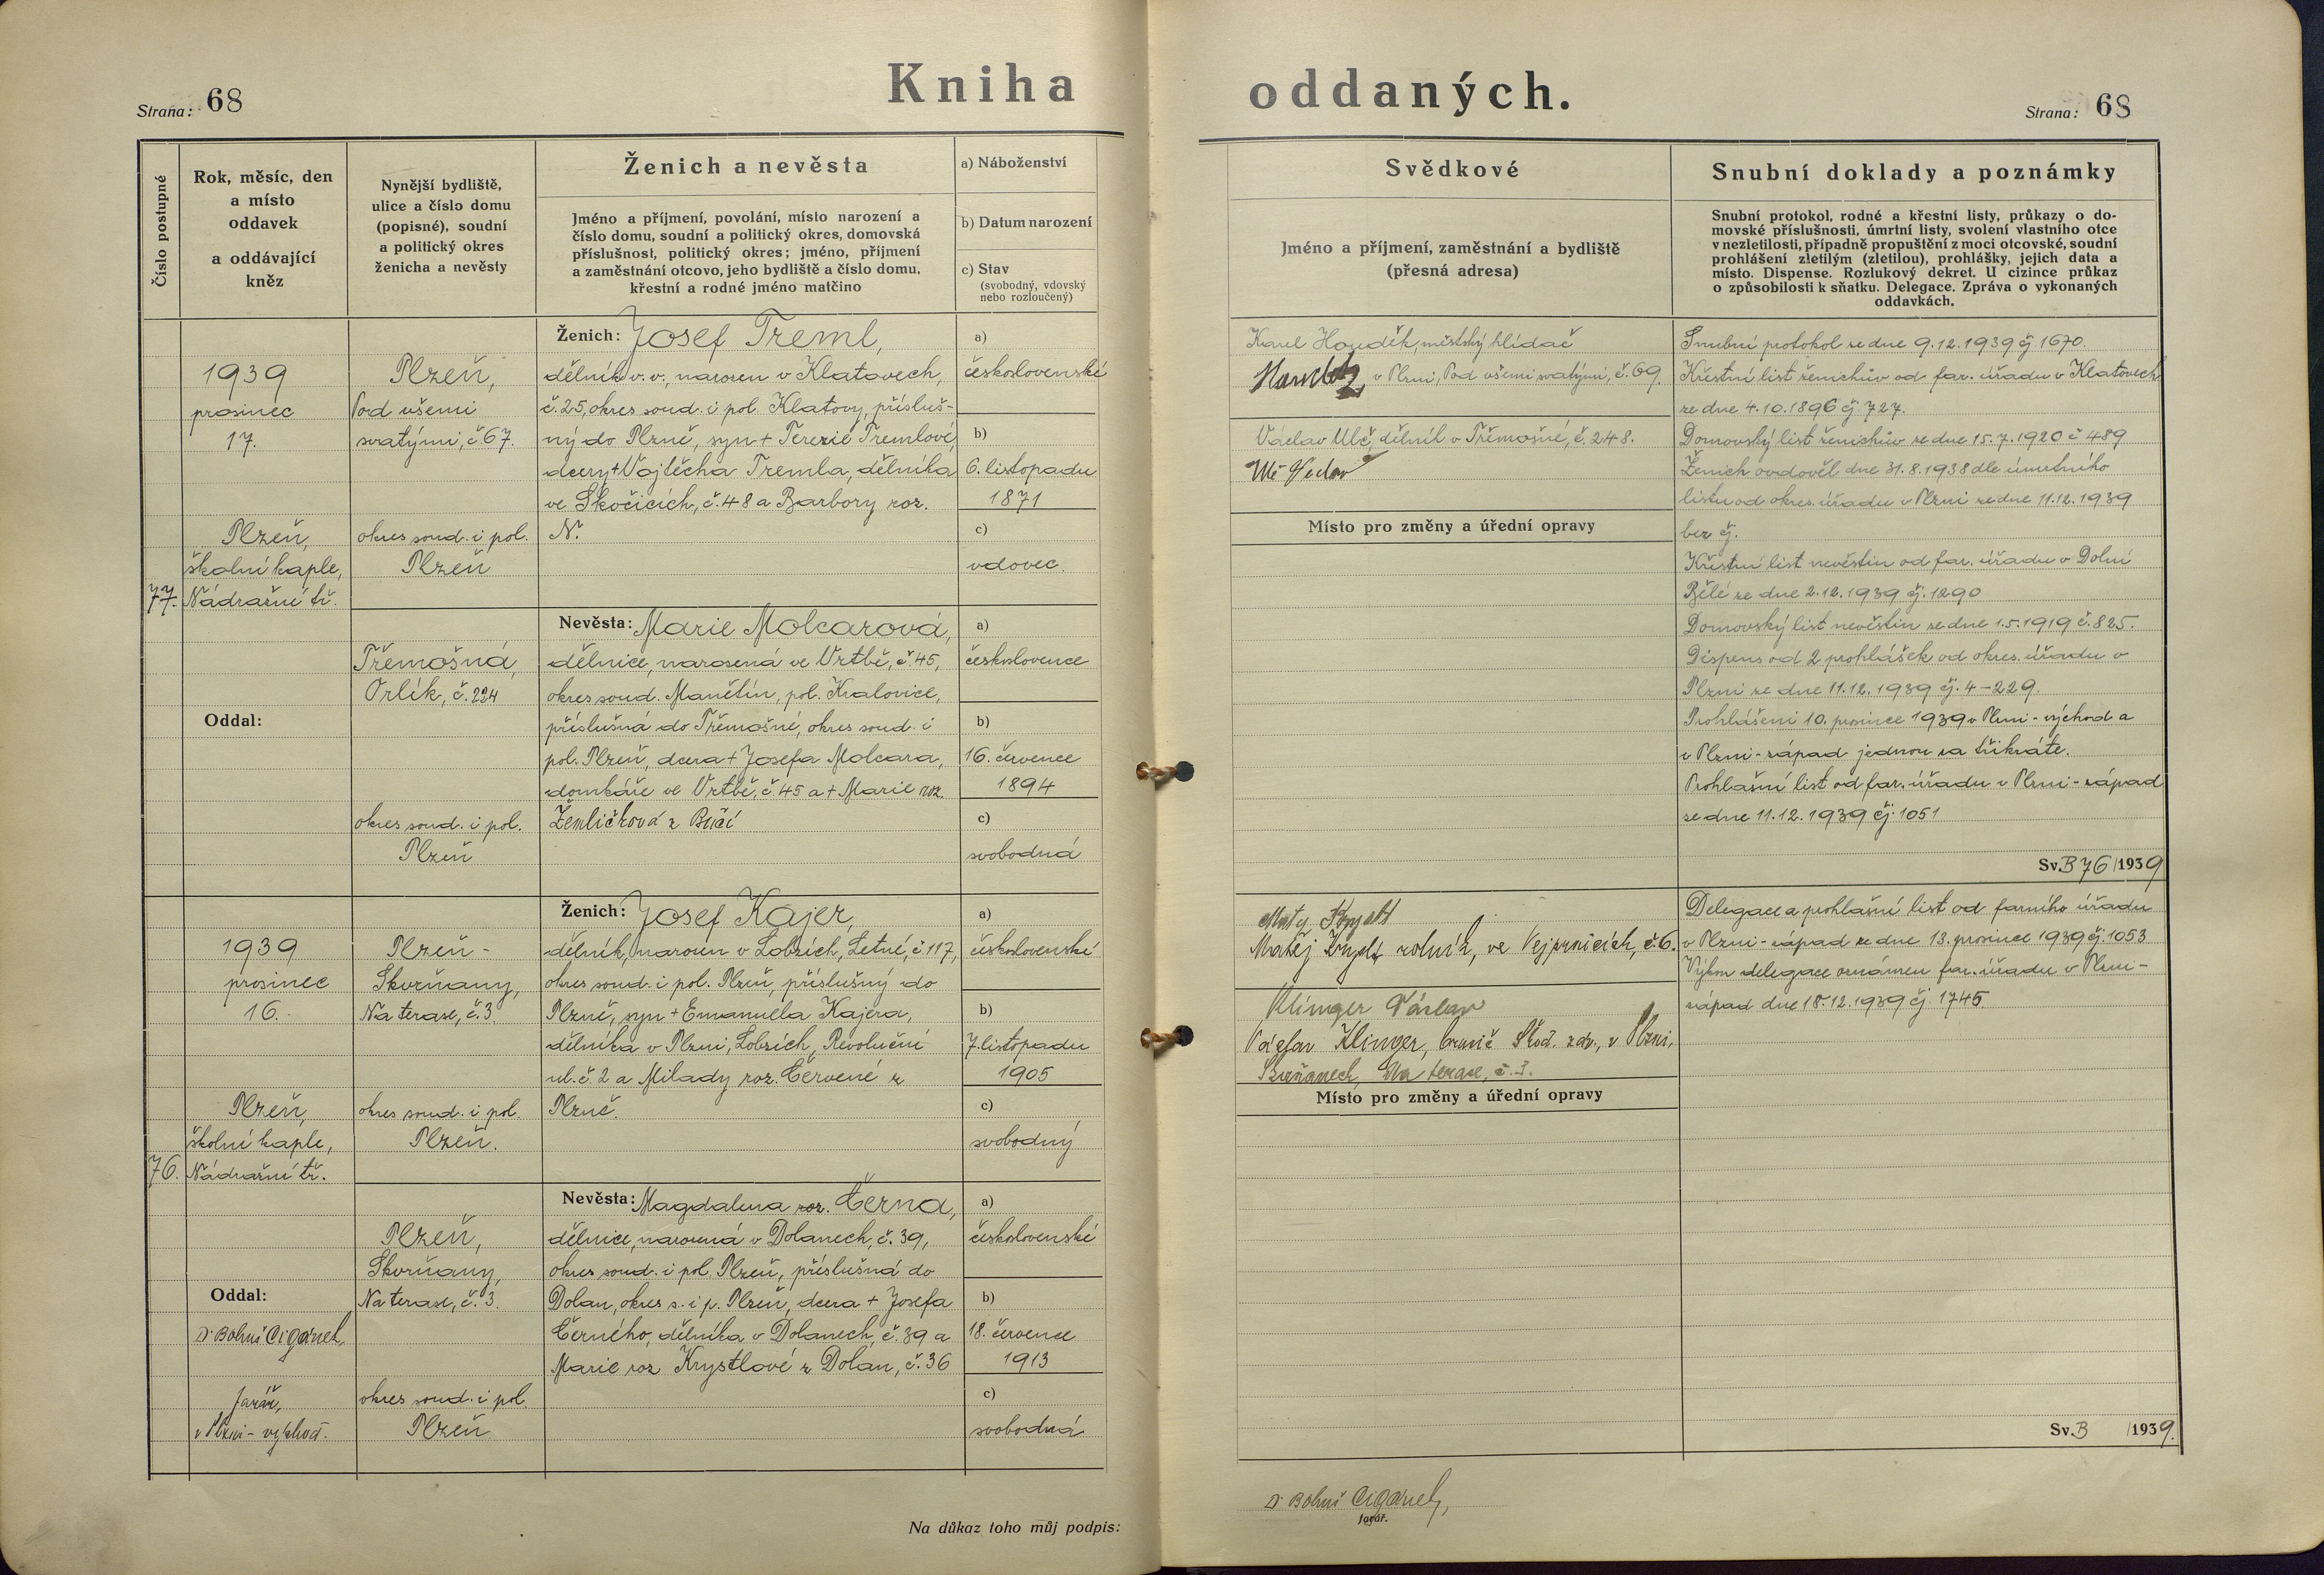 Strana: 68
Kniha oddaných.
Strana: 68
Číslo postupné
Rok, měsíc, den
a místo
oddavek
a oddávající
kněz
Nynější bydliště,
ulice a číslo domu
(popisné), soudní
a politický okres
ženicha a nevěsty
Ženich a nevěsta
Jméno a příjmení, povolání, místo narození a
číslo domu, soudní a politický okres, domovská
příslušnost, politický okres; jméno, příjmení
a zaměstnání otcovo, jeho bydliště a číslo domu,
křestní a rodné jméno matčino
a) Náboženství
b) Datum narození
c) Stav
(svobodný, vdovský
nebo rozloučený)
Svědkové
Jméno a příjmení, zaměstnání a bydliště
(přesná adresa)
Snubní doklady a poznámky
Snubní protokol, rodné a křestní listy, průkazy o do-
movské příslušnosti, úmrtní listy, svolení vlastního otce
v nezletilosti, případně propuštění z moci otcovské, soudní
prohlášení zletilým (zletilou), prohlášky, jejich data a
místo. Dispense. Rozlukový dekret. U cizince průkaz
o způsobilosti k sňatku. Delegace. Zpráva o vykonaných
oddavkách.
77.
1939
prosinec
17.
Plzeň,
školní kaple,
Nádražní tř.
Oddal:
Plzeň,
Pod všemi
svatými, č. 67.
okres soud. i pol.
Plzeň
Třemošná,
Orlík, č. 224
okres soud. i pol.
Plzeň
Ženich: Josef Treml,
dělník v. v., narozen v Klatovech,
č. 25, okres soud. i pol. Klatovy, přísluš-
ný do Plzně, syn + Terezie Tremlové,
dcery + Vojtěcha Tremla, dělníka
ve Skočicích, č. 48 a Barbory roz.
N.
a)
československé
b)
6. listopadu
1871
c)
vdovec.
Nevěsta: Marie Molcarová,
dělnice, narozená ve Vrtbě, č. 45,
okres soud. Manětín, pol. Kralovice,
příslušná do Třemošné, okres soud. i
pol. Plzeň, dcera + Josefa Molcara,
domkáře ve Vrtbě, č. 45 a + Marie roz.
Žemličková z Bučí
a)
československé
b)
16. července
1894
c)
svobodná
Karel Houděk, městský hlídač
v Plzni, Pod všemi svatými, č. 69.
Václav Ulč, dělník v Třemošné, č. 248.
Ulč Václav
Místo pro změny a úřední opravy
Snubní protokol ze dne 9.12.1939 čj. 1670.
Křestní list ženichův od far. úřadu v Klatovech
ze dne 4.10.1896 čj. 727.
Domovský list ženichův ze dne 15.7.1920 č 489
Ženich ovdověl dne 31.8.1938 dle úmrtního
listu od okres. úřadu v Plzni ze dne 11.12.1939
bez čj.
Křestní list nevěstin od far. úřadu v Dolní
Bělé ze dne 2.12.1939 čj. 1290
Domovský list nevěstin ze dne 1.5.1919 č. 825.
Dispens od 2 prohlášek od okres. úřadu v
Plzni ze dne 11.12.1939 čj. 4-229.
Prohlášeni 10. prosince 1939 v Plzni - východ a
v Plzni - západ jednou za třikráte.
Prohlašní list od far. úřadu v Plzni - západ
ze dne 11.12.1939 čj. 1051
Sv. B 76/1939
76.
1939
prosinec
16.
Plzeň,
školní kaple,
Nádražní tř.
Oddal:
Dr Bohuš Cigánek
farář,
v Plzni - východ.
Plzeň -
Skvrňany,
Na terase, č. 3.
okres soud. i pol.
Plzeň.
Plzeň,
Skvrňany,
Na terase, č. 3.
okres soud. i pol.
Plzeň
Ženich: Josef Kajer,
dělník, narozen v Lobzích, Letné, č. 117,
okres soud. i pol. Plzeň, příslušný do
Plzně, syn + Emanuela Kajera,
dělníka v Plzni, Lobzích, Revoluční
ul. č. 2 a Milady roz. Červené z
Plzně.
a)
československé
b)
7. listopadu
1905
c)
svobodný
Nevěsta: Magdalena roz. Černá,
dělnice, narozená v Dolanech, č. 39,
okres soud. i pol. Plzeň, příslušná do
Dolan, okres s. i p. Plzeň, dcera + Josefa
Černého, dělníka v Dolanech, č. 39 a
Marie roz Krystlové z Dolan, č. 36
a)
československé
b)
18. července
1913
c)
svobodná
Matěj rolník, ve Vejprnicích, č. 6.
Klinger Václav
Václav Klinger, Škod. záv., v Plzni,
Skvrňanech, Na terase, č. 3.
Místo pro změny a úřední opravy
Delegace a prohlašní list od farního úřadu
v Plzni - západ ze dne 13. prosince 1939 čj. 1053
Výkon delegace oznámen far. úřadu v Plzni -
západ dne 18.12.1939 čj. 1745.
Sv. B /1939.
Na důkaz toho můj podpis:
Dr Bohuš Cigánek,
farář.